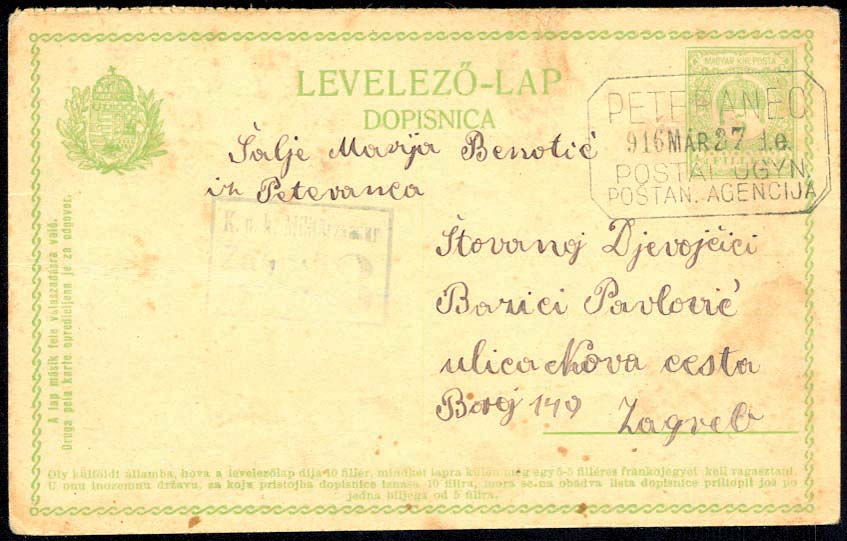 LEVELEZŐ-LAP
DOPISNICA
MAGYAR KIR. POSTA
PETERANEC
916 MÁR 27 d.e.
POSTAI ÜGYN.
POSTAN. AGENCIJA
Šalje Marija Benotić
iz Peteranca
K. u. k. Militärzensur
Zagreb
Štovanoj Djevojčici
Barici Pavlović
ulica Nova cesta
Broj 149 Zagreb
A lap másik fele válaszadásra való.
Druga pela karte opredieljena je za odgovor.
Oly külföldi államba, hova a levelezőlap díja 10 fillér, mindkét lapra külön még egy 5-5 filléres frankojegyet kell ragasztani.
U onu inozemnu državu, za koju pristojba dopisnice iznaša 10 filira, mora se na obadva lista dopisnice prilíepit još po
jedna biljega od 5 filira.